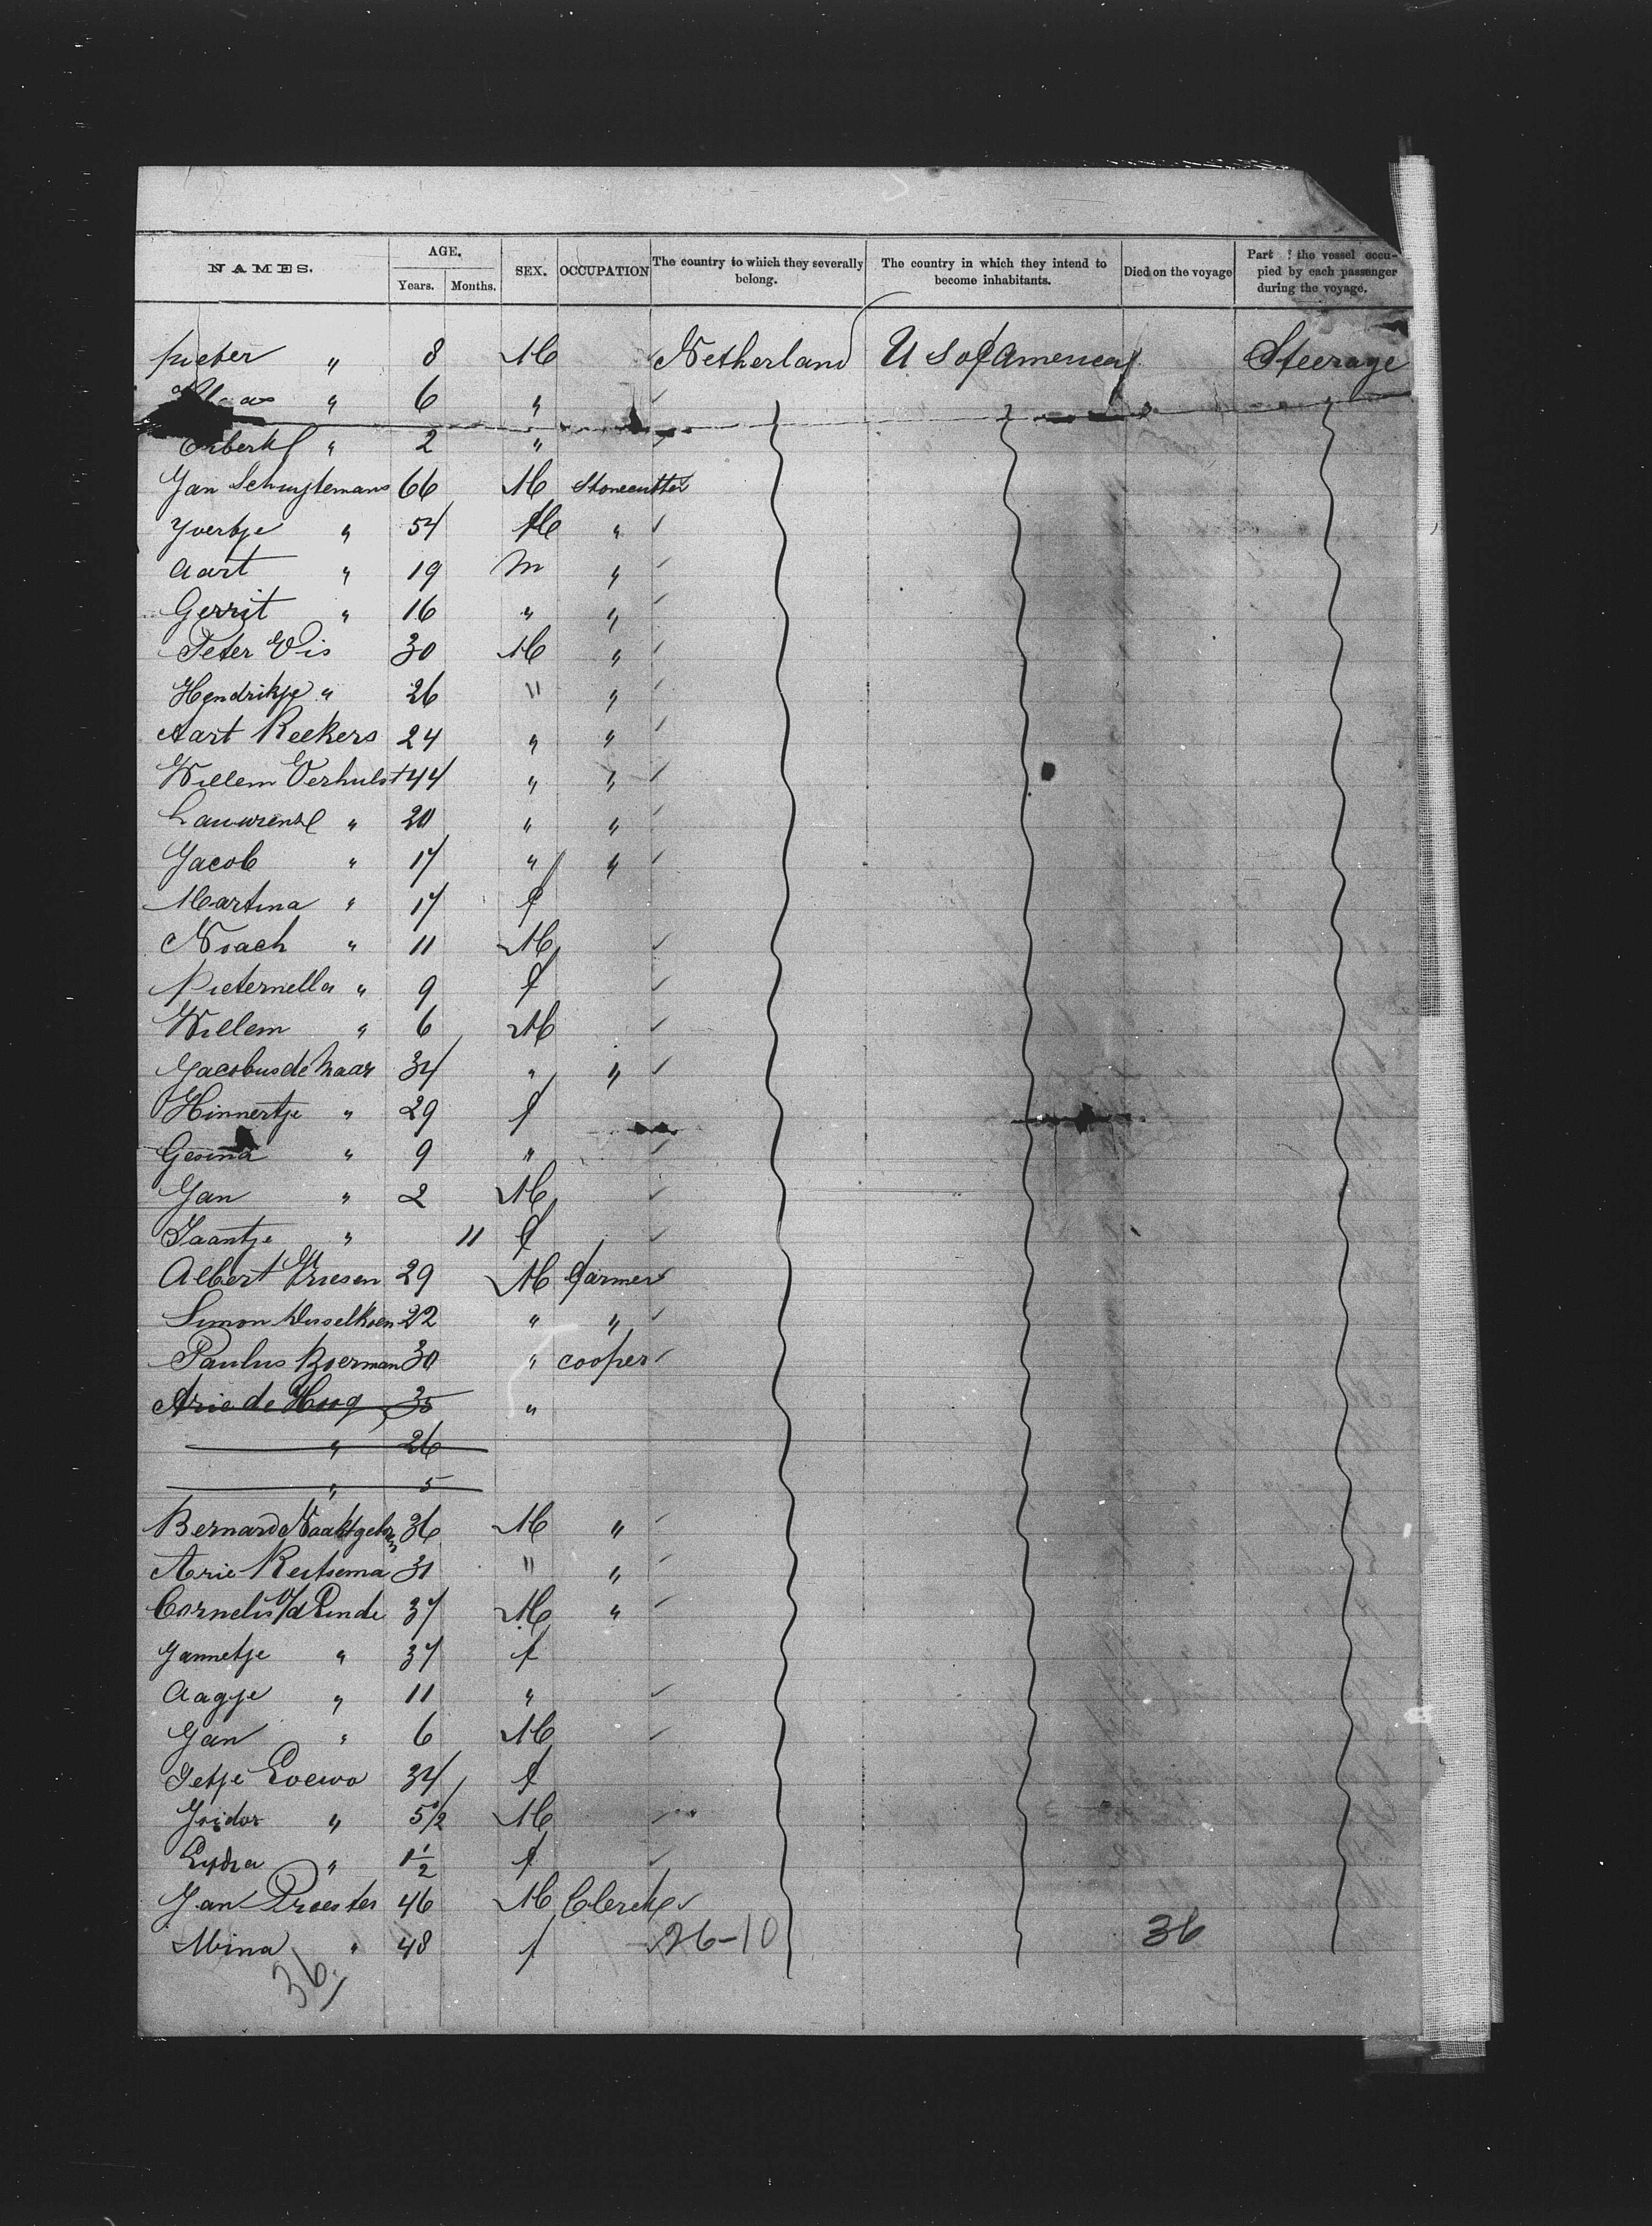 NAMES. AGE. Years. Months. SEX. OCCUPATION The country to which they severally belong. The country in which they intend to become inhabitants. Died on the voyage Part the vessel occupied by each passenger during the voyage.
Pieter " 8 M Netherland U S of America Steerage
" 6 "
" 2 "
Jan Schuytemans 66 M Stonecutter
Yvertje " 54 M "
Aart " 19 m "
Gerrit " 16 " "
Peter Vis 30 M "
Hendrikje " 26 " "
Aart Reekers 24 " "
Willem Verhulst 44 " "
" 20 " "
Jacob " 17 " "
Martina " 17 f
Noach " 11 M
Pieternella " 9 f
Willem " 6 M
Jacobus de Haar 34 " "
Hinnertje " 29 f
Gesina " 9 "
Jan " 2 M
Jaantje " 11 f
Albert Driesen 29 M Farmer
Simon 22 " "
Paulus Boerman 30 " cooper
Arie de Hoog 35 "
" 26
" 5
Bernard Naaktgeboren 36 M "
Arie Reitsema 31 " "
Cornelis v/d Linde 37 M "
Jannetje " 37 f
Aagje " 11 "
Jan " 6 M
Jetje 34 f
Isidor " 5 1/2 M
Lydia " 1 1/2 f
Jan Proester 46 M Clerck
Mina " 48 f 26-10 36
36